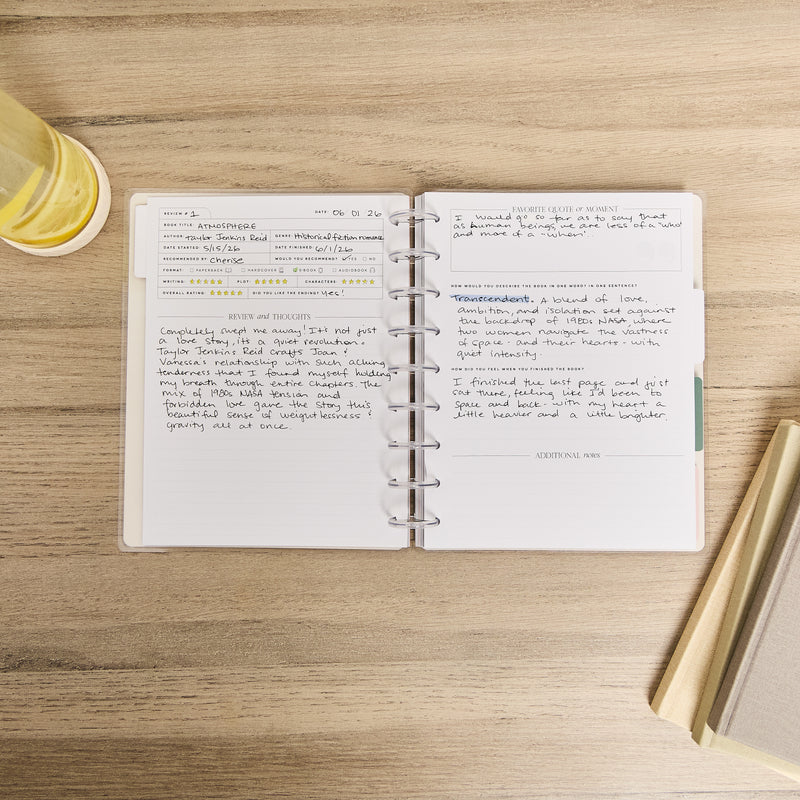 REVIEW # 1 DATE: 06 01 26
BOOK TITLE: ATMOSPHERE
AUTHOR: Taylor Jenkins Reid GENRE: Historical fiction romance
DATE STARTED: 5/15/26 DATE FINISHED: 6/1/26
RECOMMENDED BY: Cherise WOULD YOU RECOMMEND? ✓ YES NO
FORMAT: PAPERBACK HARDCOVER EBOOK AUDIOBOOK
WRITING: ★★★★★ PLOT: ★★★★★ CHARACTERS: ★★★★★
OVERALL RATING: ★★★★★ DID YOU LIKE THE ENDING? Yes!
REVIEW and THOUGHTS
Completely swept me away! It's not just
a love story, it's a quiet revolution.
Taylor Jenkins Reid crafts Joan &
Vanessa's relationship with such aching
tenderness that I found myself holding
my breath through entire chapters. The
mix of 1980s NASA tension and
forbidden love gave the story this
beautiful sense of weightlessness &
gravity all at once.
FAVORITE QUOTE or MOMENT
I would go so far as to say that
as human beings, we are less of a "who"
and more of a "when".
HOW WOULD YOU DESCRIBE THE BOOK IN ONE WORD? IN ONE SENTENCE?
Transcendent. A blend of love,
ambition, and isolation set against
the backdrop of 1980s NASA, where
two women navigate the vastness
of space - and their hearts - with
quiet intensity.
HOW DID YOU FEEL WHEN YOU FINISHED THE BOOK?
I finished the last page and just
sat there, feeling like I'd been to
space and back - with my heart a
little heavier and a little brighter.
ADDITIONAL notes